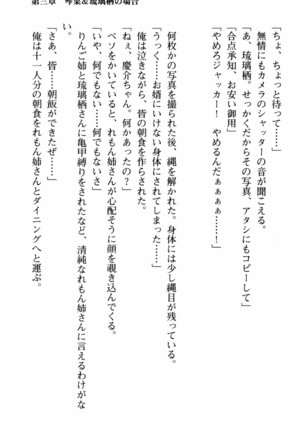 第三章　琴葉&琉璃栖の場合
「ちょ、ちょっと待って……」
無情にもカメラのシャッターの音が聞こえる。
「あ、琉璃栖。せっかくだからその写真、アタシにもコピーして」
「合点承知、お安い御用」
「やめろジャッカー!　やめるんだぁぁぁぁ……!」
何枚かの写真を撮られた後、縄を解かれた。身体には少し縄目が残っている。
「うっく……お婿にいけない身体にされてしまった……」
俺は泣きながら、皆の朝食を作らされた。
「ねぇ、慶介ちゃん。何かあったの?」
ベソをかいていると、れもん姉さんが心配そうに顔を覗き込んでくる。
「いや、何でもない……何でもないさ」
りんご姉と琉璃栖さんに亀甲縛りをされたなど、清純なれもん姉さんに言えるわけがな
い。
「さあ、皆……朝飯ができたぜ……」
俺は十一人分の朝食をれもん姉さんとダイニングへと運ぶ。